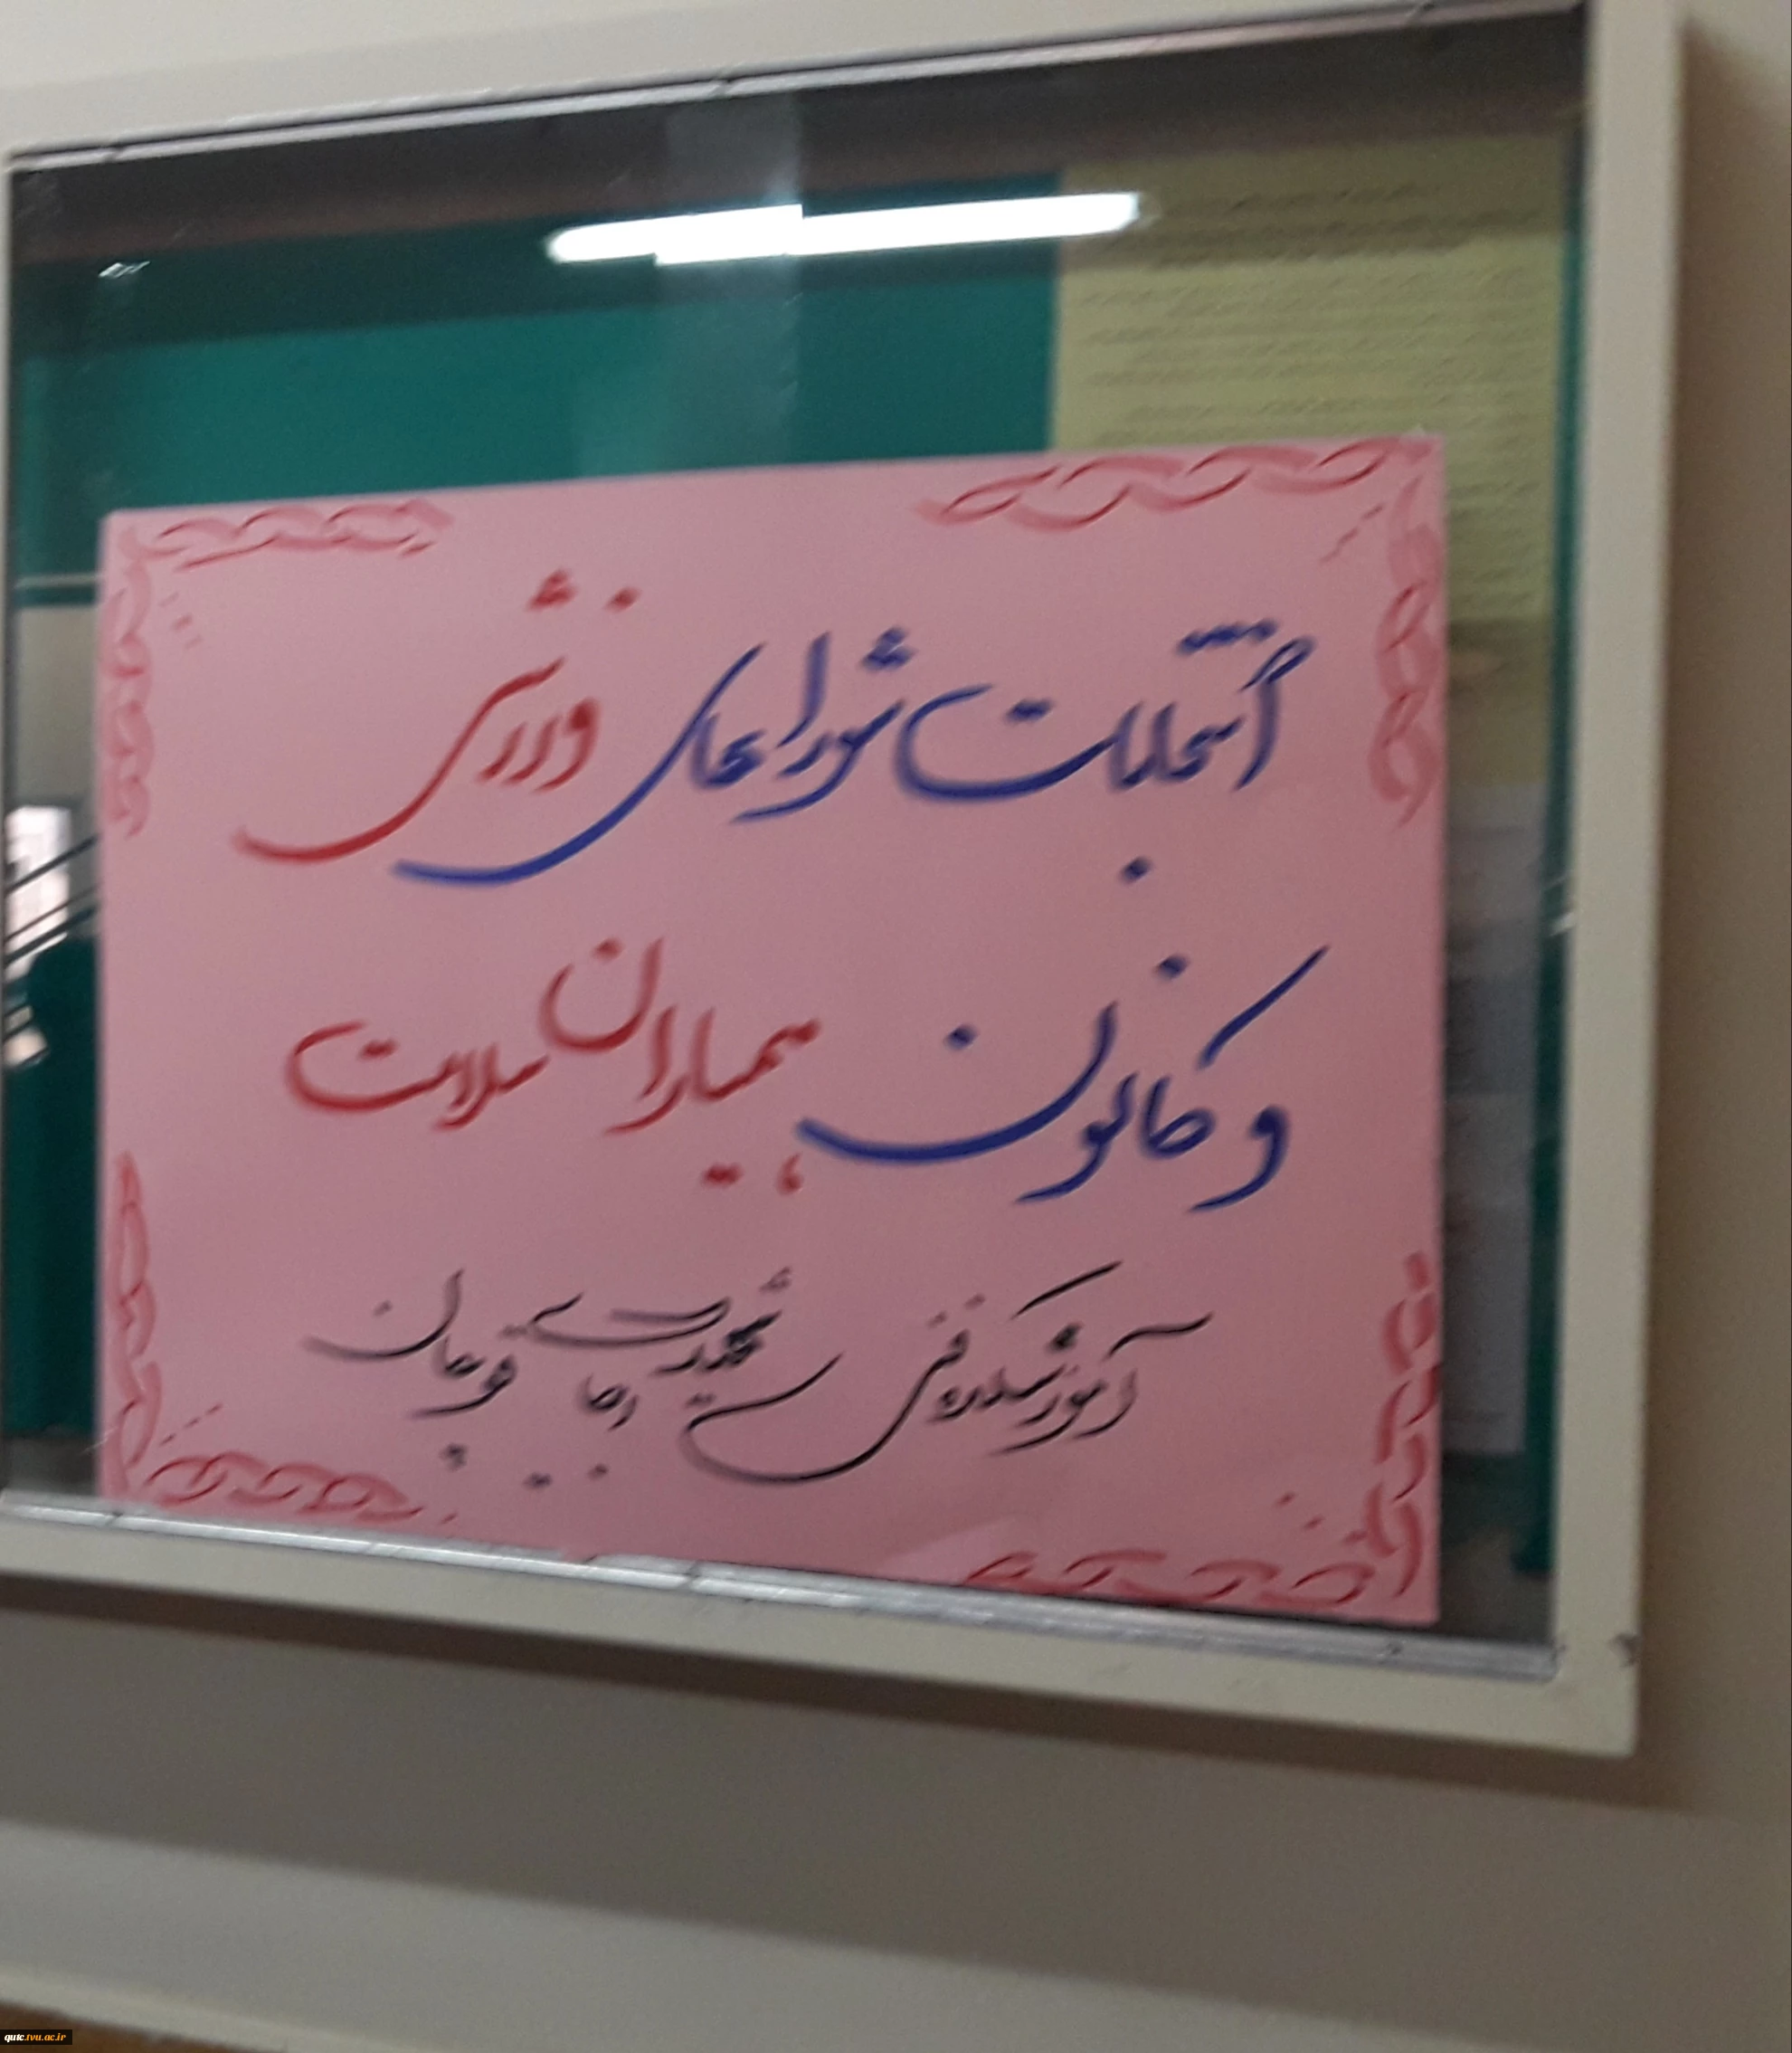 انتخابات شوراهای ورزشی
و کانون همیاران سلامت
آموزشکده فنی پسران شهید رجایی قوچان
qutc.tvu.ac.ir